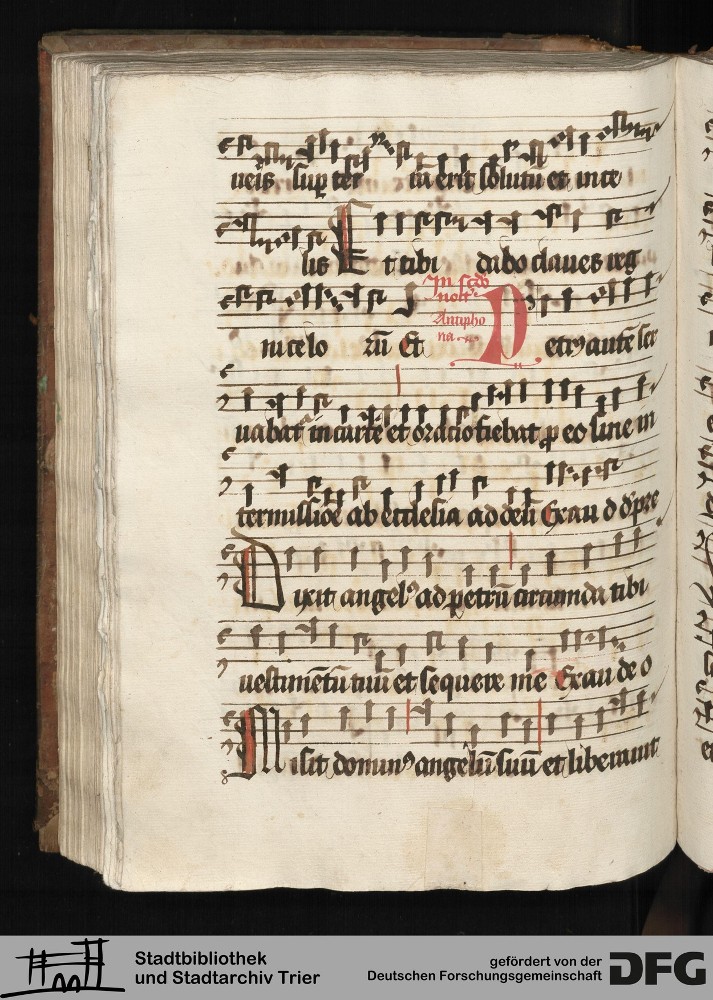 ueris sup ter rā erit solutū et in ce
lis Et tibi dabo claues reg
ni celo rū Et
In scdo
noct
Antipho
na
Petrꝰ autē ser
uabat in carcē et oratio fiebat ꝓ eo sine in
termissiōe ab ecclesia ad deū Exau d dꝰ pre
Dixit angelꝰ ad petrū circumda tibi
uestimētū tuū et sequere me Exau de o
Misit dominꝰ angelū suū et liberauit
Stadtbibliothek
und Stadtarchiv Trier
gefördert von der
Deutschen Forschungsgemeinschaft
DFG